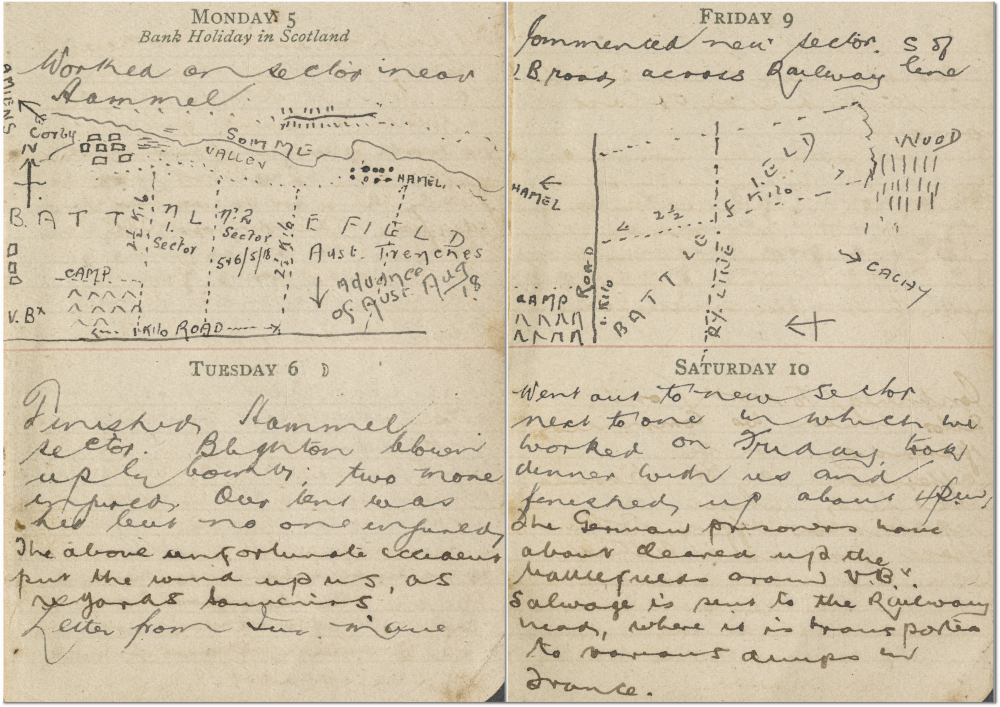 MONDAY 5
Bank Holiday in Scotland
Worked on sector near
Hammel
AMIENS
Corby
N
SOMME
VALLEY
HAMEL
BATTLEFIELD
2½ Kilo
Nº 1. Sector
Nº 2 Sector
5&6/5/18
2½ Kilo
Aust. Trenches
Advance
of Aust. Aug
18
CAMP
V.Bx
1 Kilo ROAD
TUESDAY 6
Finished Hammel
sector. Blighton blown
up by bombs, two more
injured. Our tent was
hit but no one injured,
The above unfortunate accident
put the wind up us, as
regards souvenirs,
Letter from
FRIDAY 9
Commenced new sector. S of
V.B. road across Railway line
WOOD
HAMEL
BATTLEFIELD
2½
Kilo
ROAD
1. Kilo
RY LINE
CACHY
CAMP
SATURDAY 10
Went out to new sector
next to one in which we
worked on Friday, took
dinner with us and
finished up about 4 p.m,
The German prisoners have
about cleared up the
battlefields around V.Bx.
Salvage is sent to the Railway
head, where it is transported
to various dumps in
France.